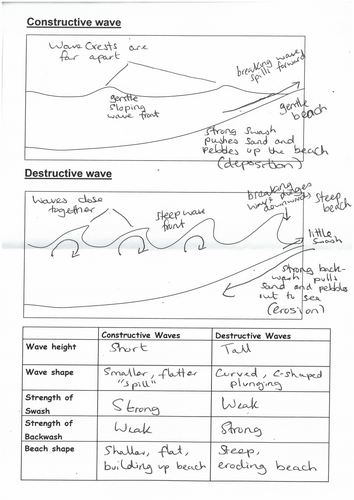 Constructive wave
Wave crests are
far apart
breaking wave
spills forward
gentle
sloping
wave front
gentle
beach
strong swash
pushes sand and
pebbles up the beach
(deposition)
Destructive wave
Waves close
together
steep wave
front
breaking
wave plunges
downwards
steep
beach
little
swash
strong back-
wash pulls
sand and pebbles
out to sea
(erosion)
Constructive Waves Destructive Waves
Wave height Short Tall
Wave shape Smaller, flatter Curved, C-shaped
"spill" plunging
Strength of
Swash Strong Weak
Strength of
Backwash Weak Strong
Beach shape Shallow, flat, Steep,
building up beach eroding beach